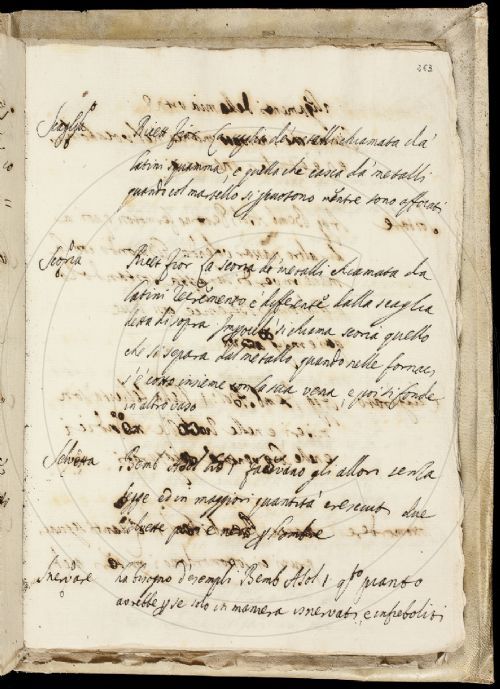 253
Scaglia Ricett Fior La scaglia de' metalli chiamata da'
latini squamma, e quella che casca da' metalli
quando col martello si percotono mentre sono affocati
Scoria Ricett Fior la scoria de' metalli chiamata da
latini recremento e differente dalla scaglia
detta di sopra si chiama scoria quello
che si separa dal metallo quando nelle fornaci
s'è cotto insieme con la sua vena, e poi si fonde
in altro vaso
Selvetta Bemb Asol facevano gli allori senza
legge ed in maggior quantità cresciuti due
selvette pari e nere
Snervare ha bisogno d'esempli Bemb Asol 1 quanto
avrebbe se solo in maniera snervati, e infieboliti